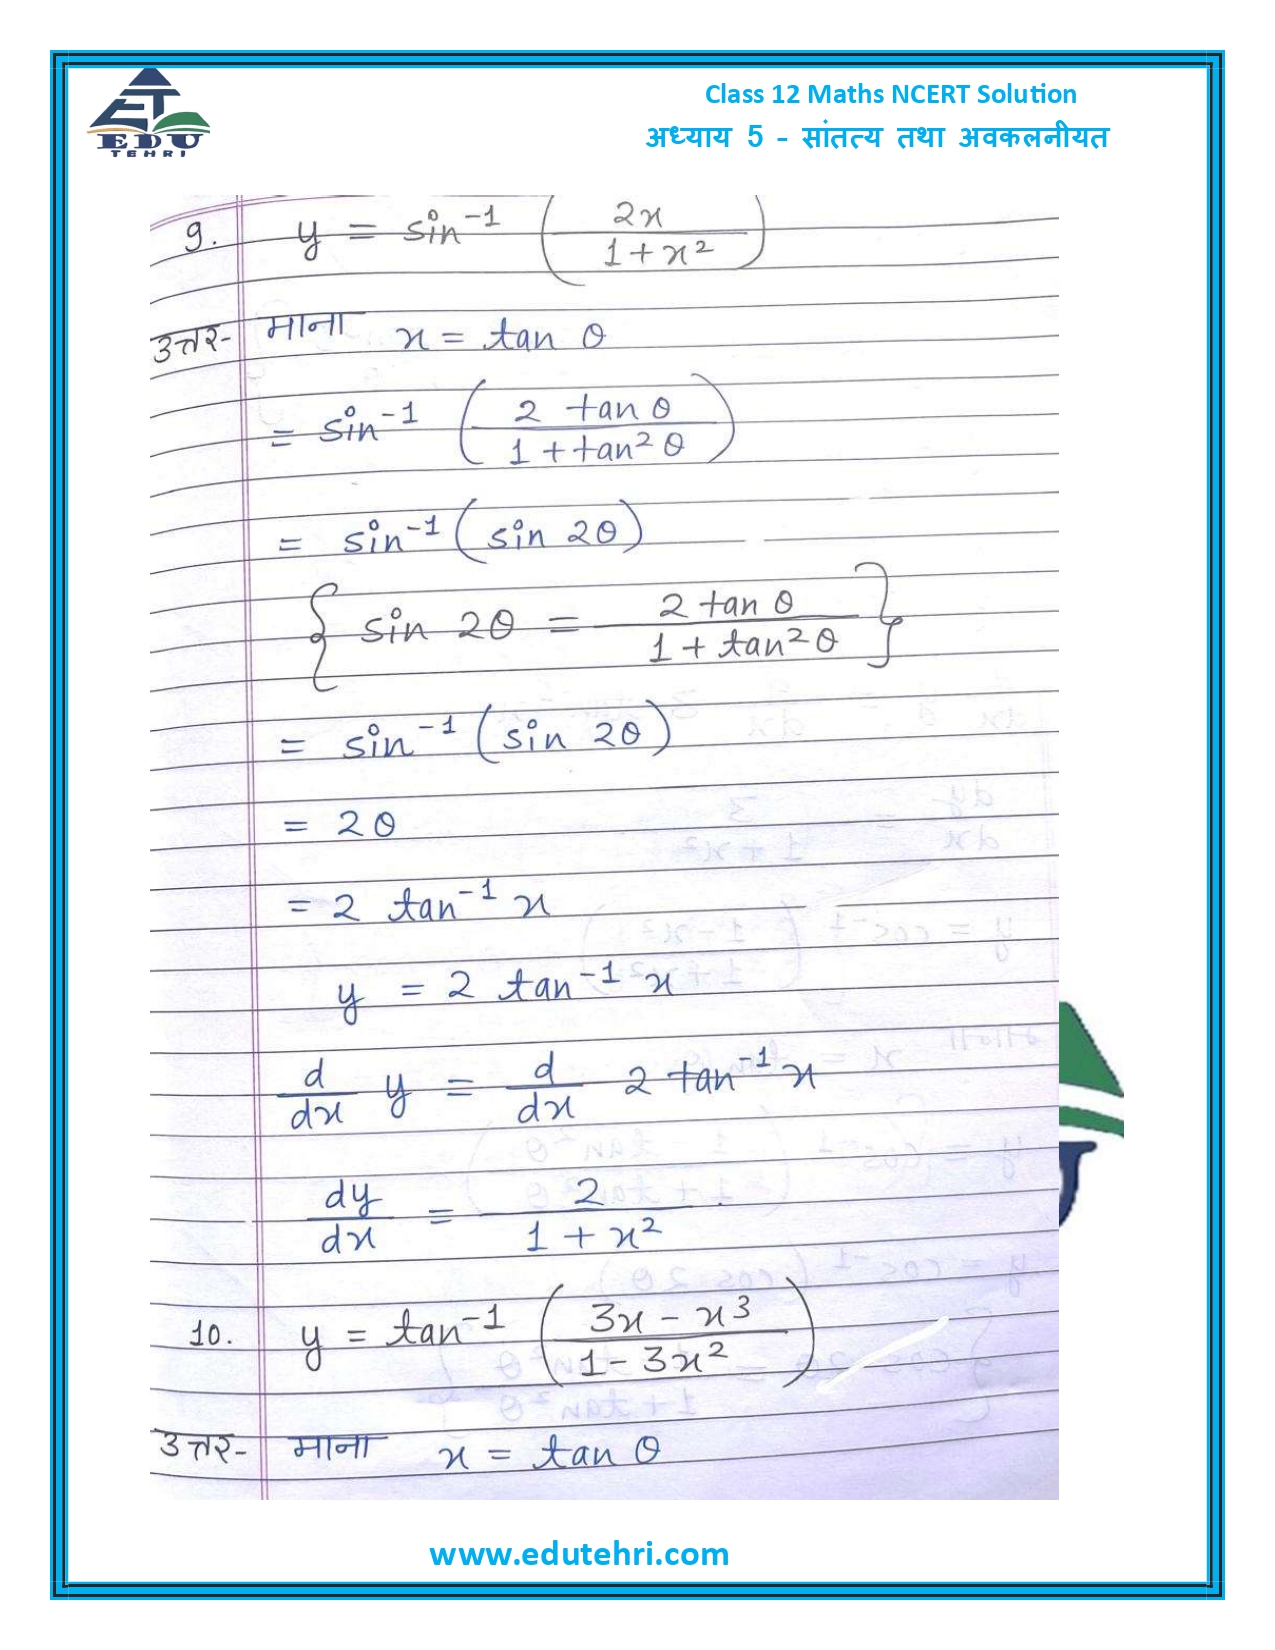 EDU
TEHRI
Class 12 Maths NCERT Solution
अध्याय 5 - सांतत्य तथा अवकलनीयत
9. y = sin⁻¹ (2x / 1+x²)
उत्तर- माना x = tan θ
= sin⁻¹ (2 tan θ / 1+tan² θ)
= sin⁻¹ (sin 2θ)
{sin 2θ = 2 tan θ / 1+tan² θ}
= sin⁻¹ (sin 2θ)
= 2θ
= 2 tan⁻¹ x
y = 2 tan⁻¹ x
d/dx y = d/dx 2 tan⁻¹ x
dy/dx = 2 / 1+x²
10. y = tan⁻¹ (3x - x³ / 1 - 3x²)
उत्तर- माना x = tan θ
www.edutehri.com